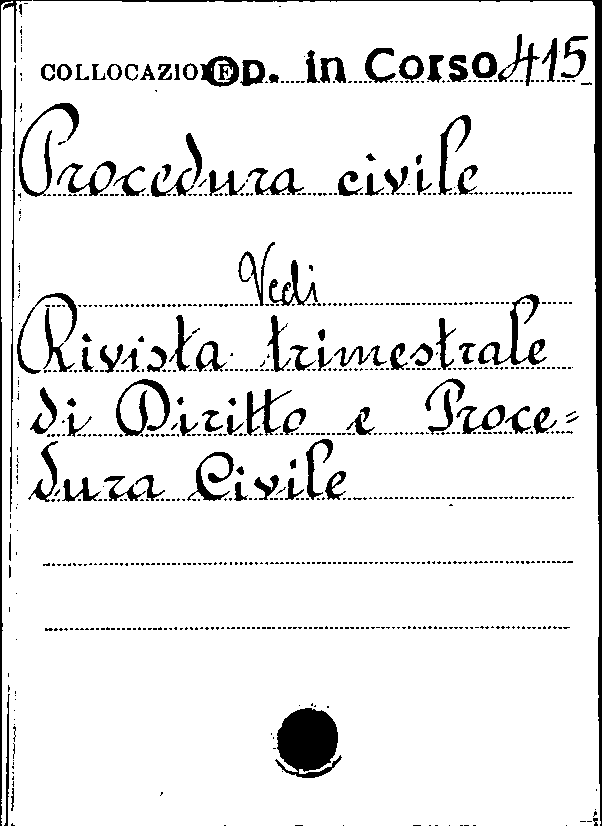 COLLOCAZIONE Op. in Corso 415
Procedura civile
Vedi
Rivista trimestrale
di Diritto e Proce=
dura Civile